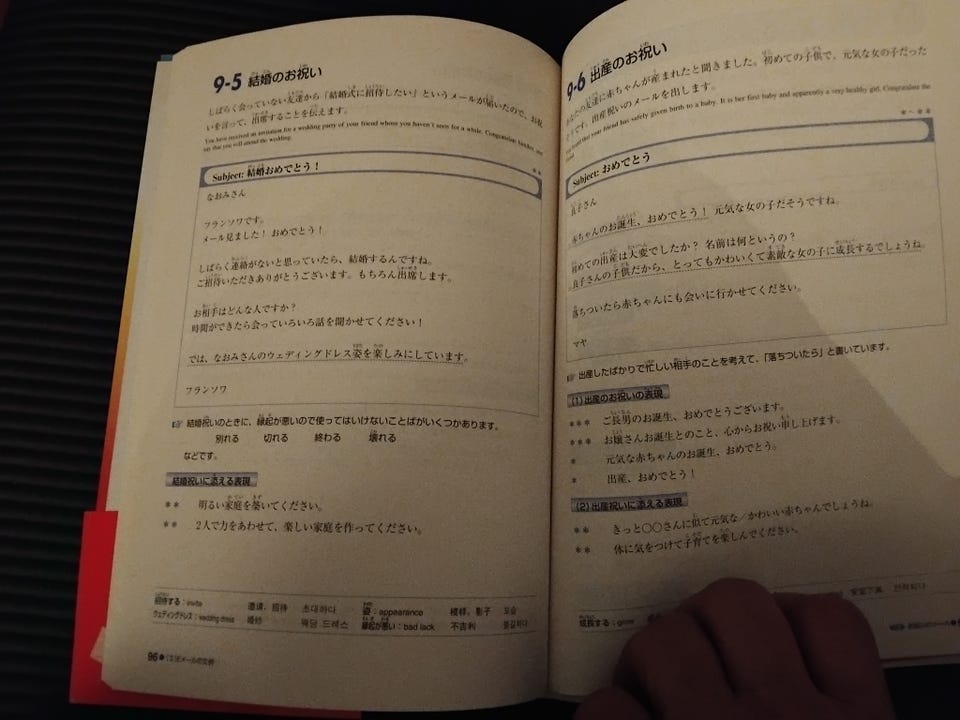 9-5 結婚のお祝い
しばらく会っていない友達から「結婚式に招待したい」というメールが届いたので、お祝
いを言って、出席することを伝えます。
You have received an invitation for a wedding party of your friend whom you haven't seen for a while. Congratulate him/her, and
say that you will attend the wedding.
**
Subject: 結婚おめでとう！
なおみさん
フランソワです。
メール見ました！ おめでとう！
しばらく連絡がないと思っていたら、結婚するんですね。
ご招待いただきありがとうございます。もちろん出席します。
お相手はどんな人ですか？
時間ができたら会っていろいろ話を聞かせてください！
では、なおみさんのウェディングドレス姿を楽しみにしています。
フランソワ
☞ 結婚祝いのときに、縁起が悪いので使ってはいけないことばがいくつかあります。
別れる 切れる 終わる 壊れる
などです。
結婚祝いに添える表現
** 明るい家庭を築いてください。
** 2人で力をあわせて、楽しい家庭を作ってください。
招待する：invite 邀请，招待 초대하다 姿：appearance 模样，影子 모습
ウェディングドレス：wedding dress 婚纱 웨딩 드레스 縁起が悪い：bad lack 不吉利 불길하다
96 ●
9-6 出産のお祝い
あなたの友達に赤ちゃんが産まれたと聞きました。初めての子供で、元気な女の子だった
そうです。出産祝いのメールを出します。
You heard that your friend has safely given birth to a baby. It is her first baby and apparently a very healthy girl. Congratulate the
*～**
Subject: おめでとう
良子さん
赤ちゃんのお誕生、おめでとう！ 元気な女の子だそうですね。
初めての出産は大変でしたか？ 名前は何というの？
良子さんの子供だから、とってもかわいくて素敵な女の子に成長するでしょうね。
落ちついたら赤ちゃんにも会いに行かせてください。
マヤ
☞ 出産したばかりで忙しい相手のことを考えて、「落ちついたら」と書いています。
(1) 出産のお祝いの表現
*** ご長男のお誕生、おめでとうございます。
*** お嬢さんお誕生とのこと、心からお祝い申し上げます。
* 元気な赤ちゃんのお誕生、おめでとう。
* 出産、おめでとう！
(2) 出産祝いに添える表現
** きっと〇〇さんに似て元気な／かわいい赤ちゃんでしょうね。
** 体に気をつけて子育てを楽しんでください。
成長する：grow